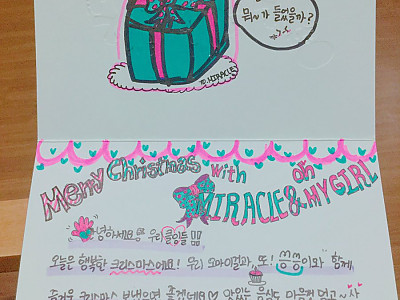 뭐~가 들었을까?
TO. MIRACLE
Merry Christmas with
MIRACLE & OH MY GIRL
안녕하세요! 우리
오늘은 행복한 크리스마스예요! 우리 오마이걸과 또! 이와 함께,
즐거운 크리스마스 보냈으면 좋겠네요♡ 맛있는 음식도 마음껏 먹고